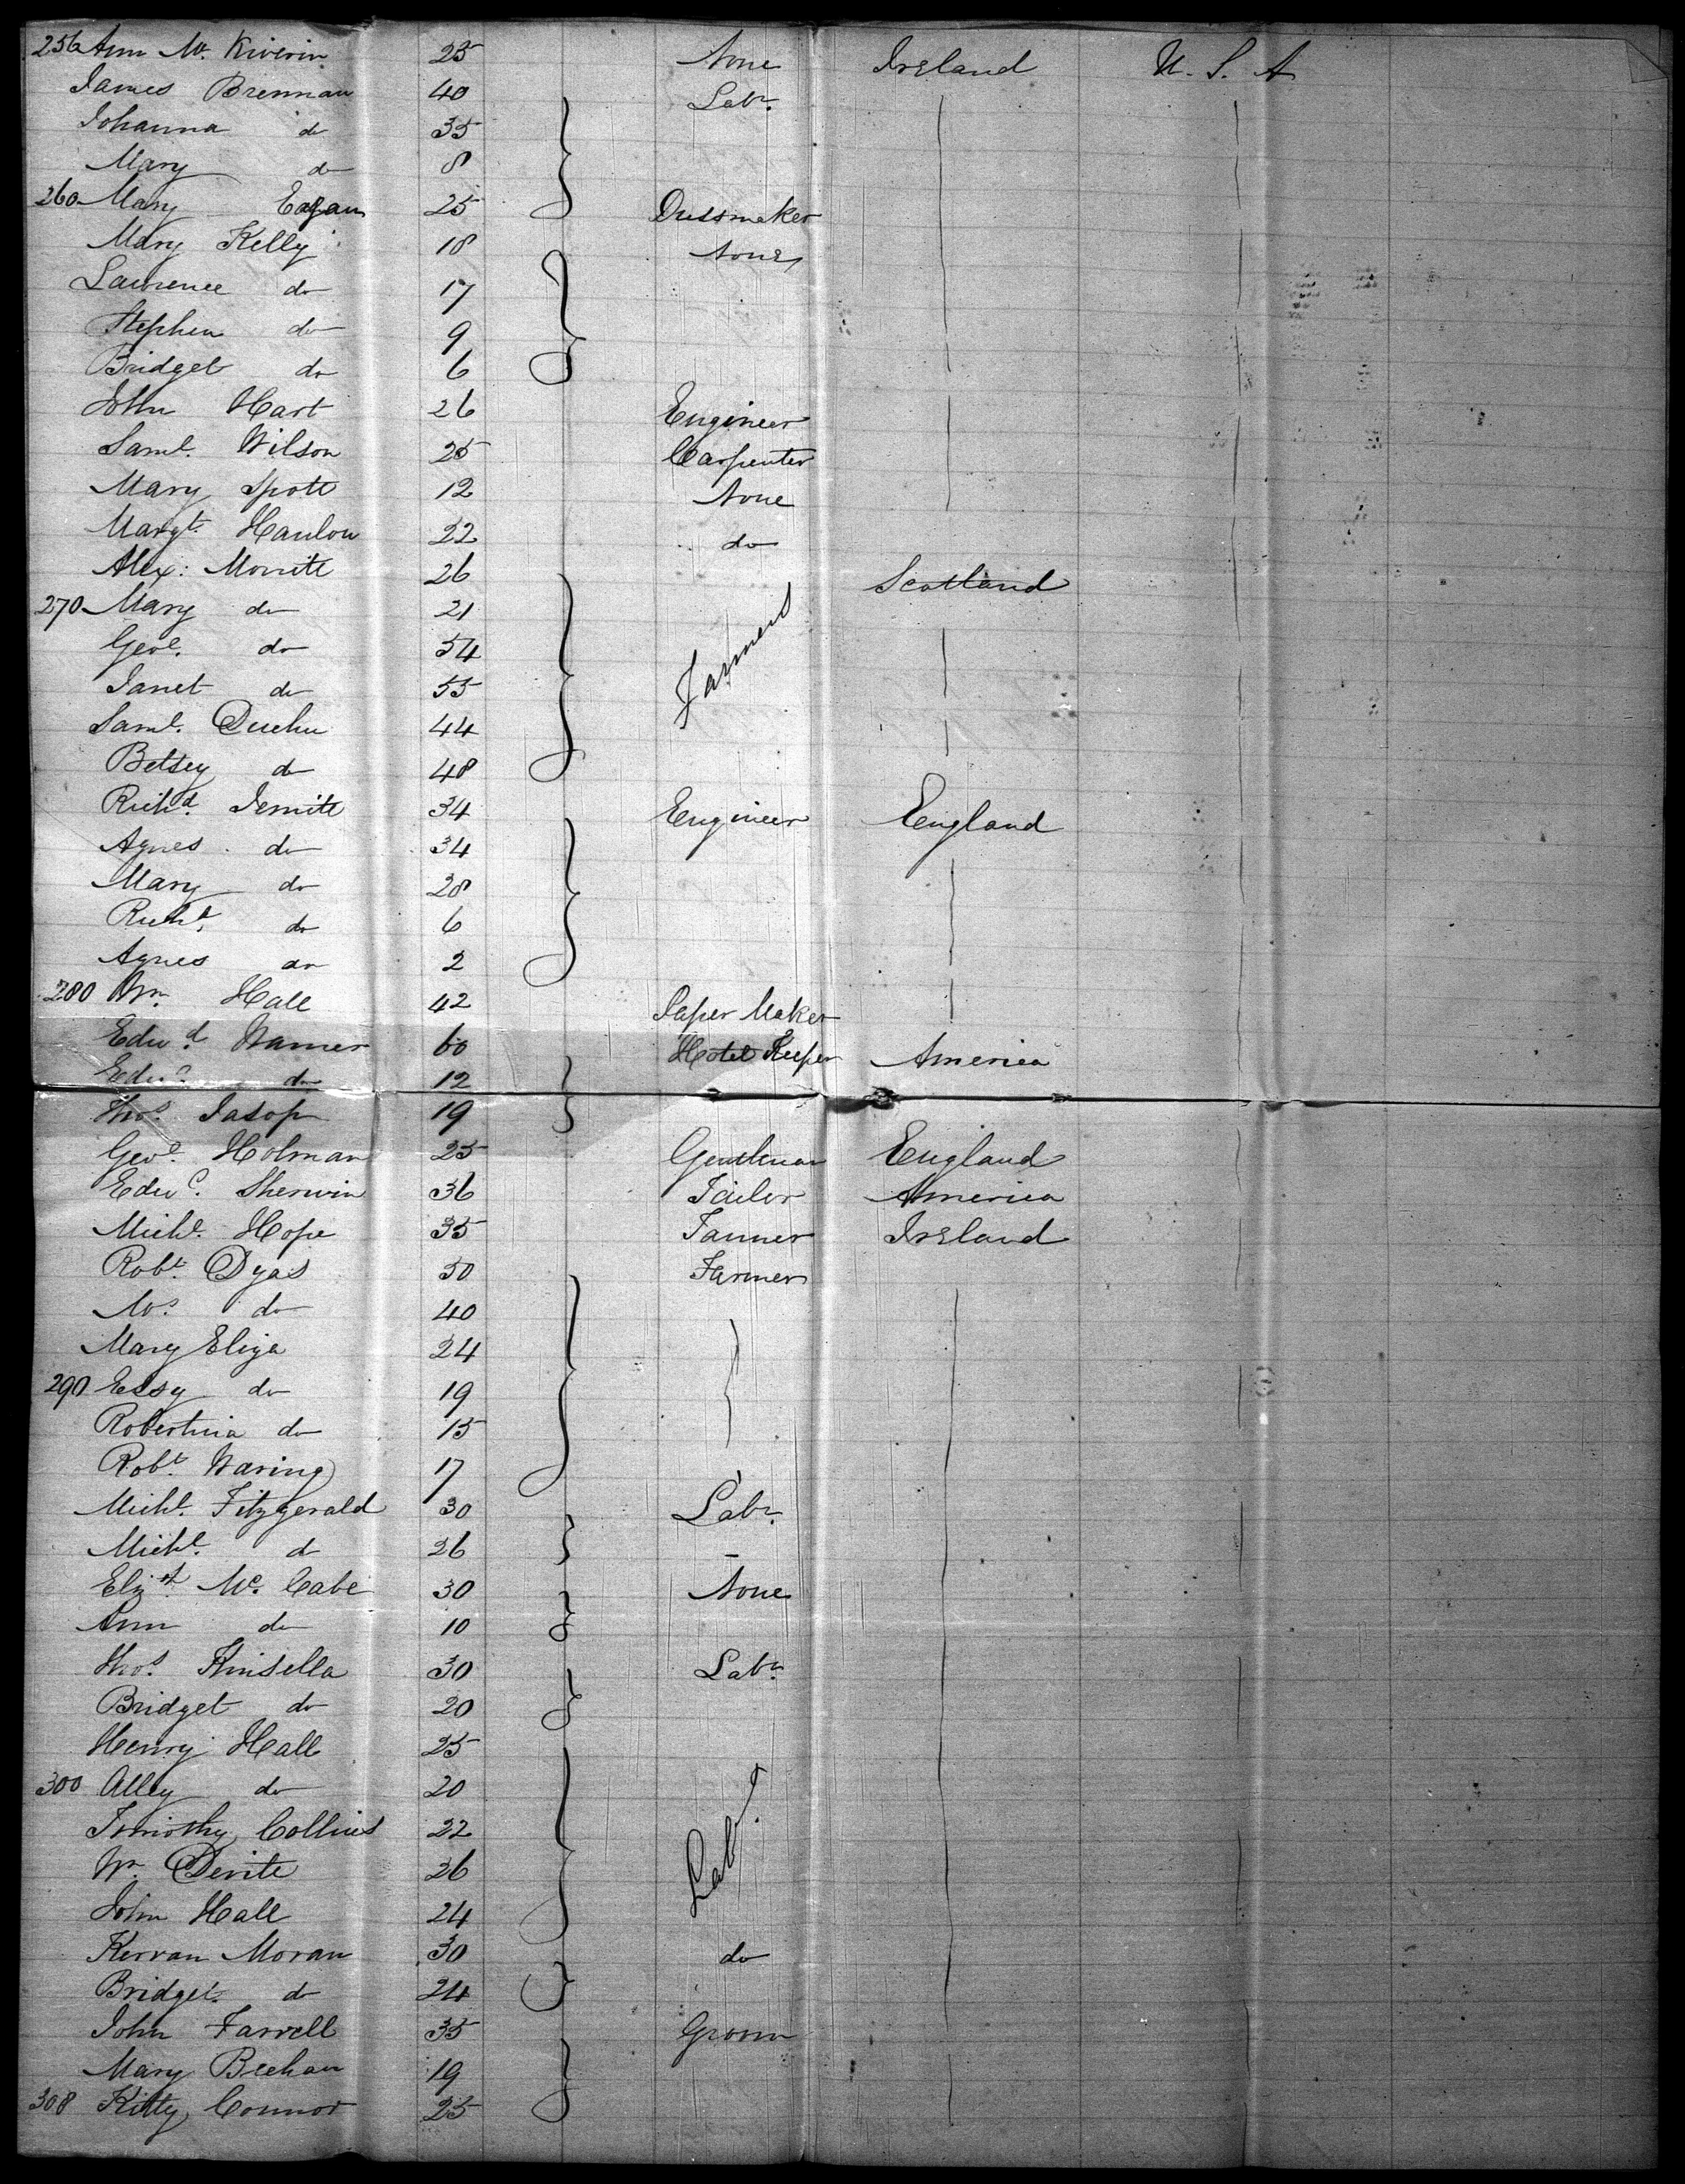 256 Ann Mc. Kiverin 25 None Ireland U. S. A
James Brennan 40 Labr.
Johanna do 35
Mary do 8
260 Mary Eagan 25 Dressmaker
Mary Kelly 18 None
Lawrence do 17
Stephen do 9
Bridget do 6
John Hart 26 Engineer
Saml. Wilson 25 Carpenter
Mary Spott 12 None
Margt. Hanlon 22 do
Alex: 26 Scotland
270 Mary do 21 Farmers
Geoe. do 54
Janet do 55
Saml. 44
Betsey do 48
Richd. 34 Engineer England
Agnes do 34
Mary do 28
Richd. do 6
Agnes do 2
280 Wm. Hall 42 Paper Maker
Edwd. Warner 60 Hotel Keeper America
Edwd. do 12
Thos. Jasop 19
Geoe. Holman 25 Gentleman England
Edwd. Sherwin 36 Tailor America
Michl. Hope 35 Tanner Ireland
Robt. Dyas 50 Farmer
Mrs. do 40
Mary Eliza 24
290 Essy do 19
Robertina do 15
Robt. Waring 17
Michl. Fitzgerald 30 Labr.
Michl. do 26
Elizth Mc. Cabe 30 None
Ann do 10
Thos. Kinsella 30 Labr.
Bridget do 20
Henry Hall 25
300 Alley do 20
Timothy Collins 22 Labrs.
Wm. Devite 26
John Hall 24
Kervan Moran 30 do
Bridget do 24
John Farrell 35 Groom
Mary Beehan 19
308 Kitty Connor 25